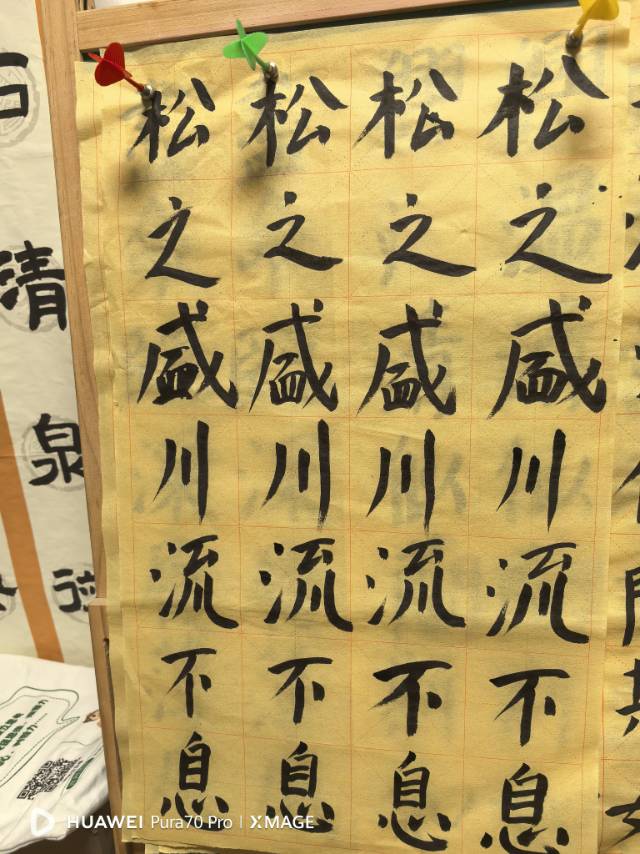 松之盛川流不息
松之盛川流不息
松之盛川流不息
松之盛川流不息
清泉
HUAWEI Pura70 Pro | XMAGE